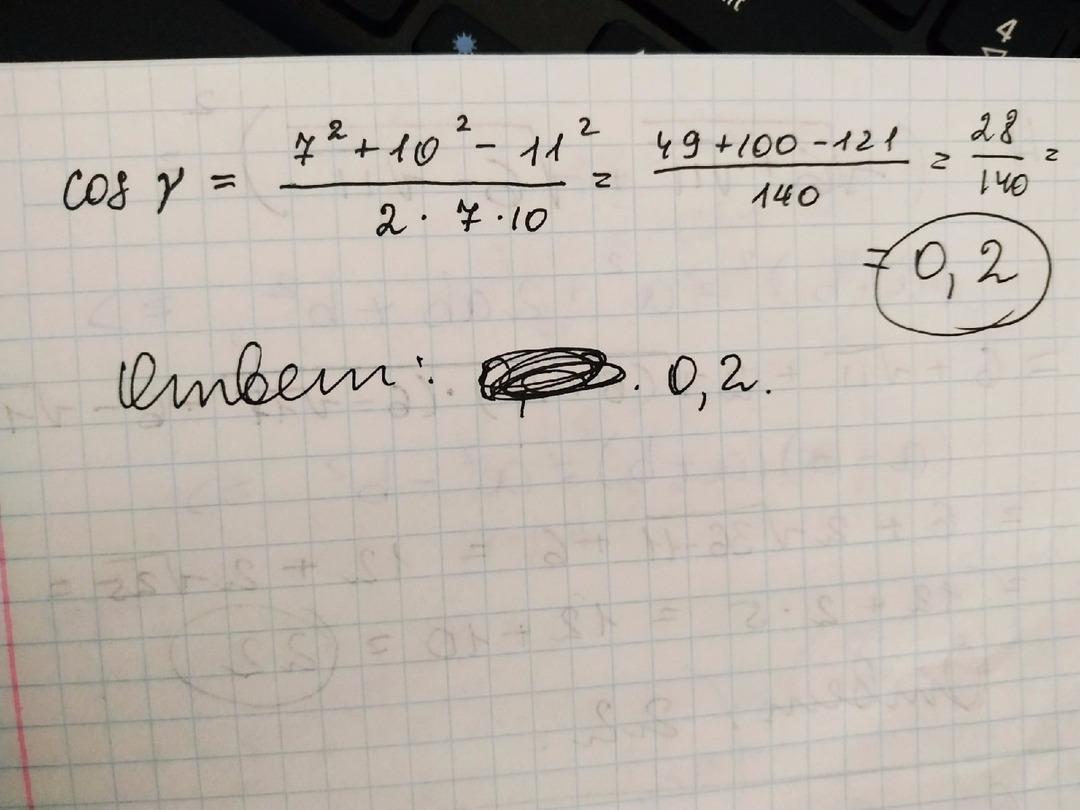 cos γ = (7² + 10² - 11²)/(2 · 7 · 10) = (49 + 100 - 121)/140 = 28/140 =
= 0,2
Ответ: 0,2.